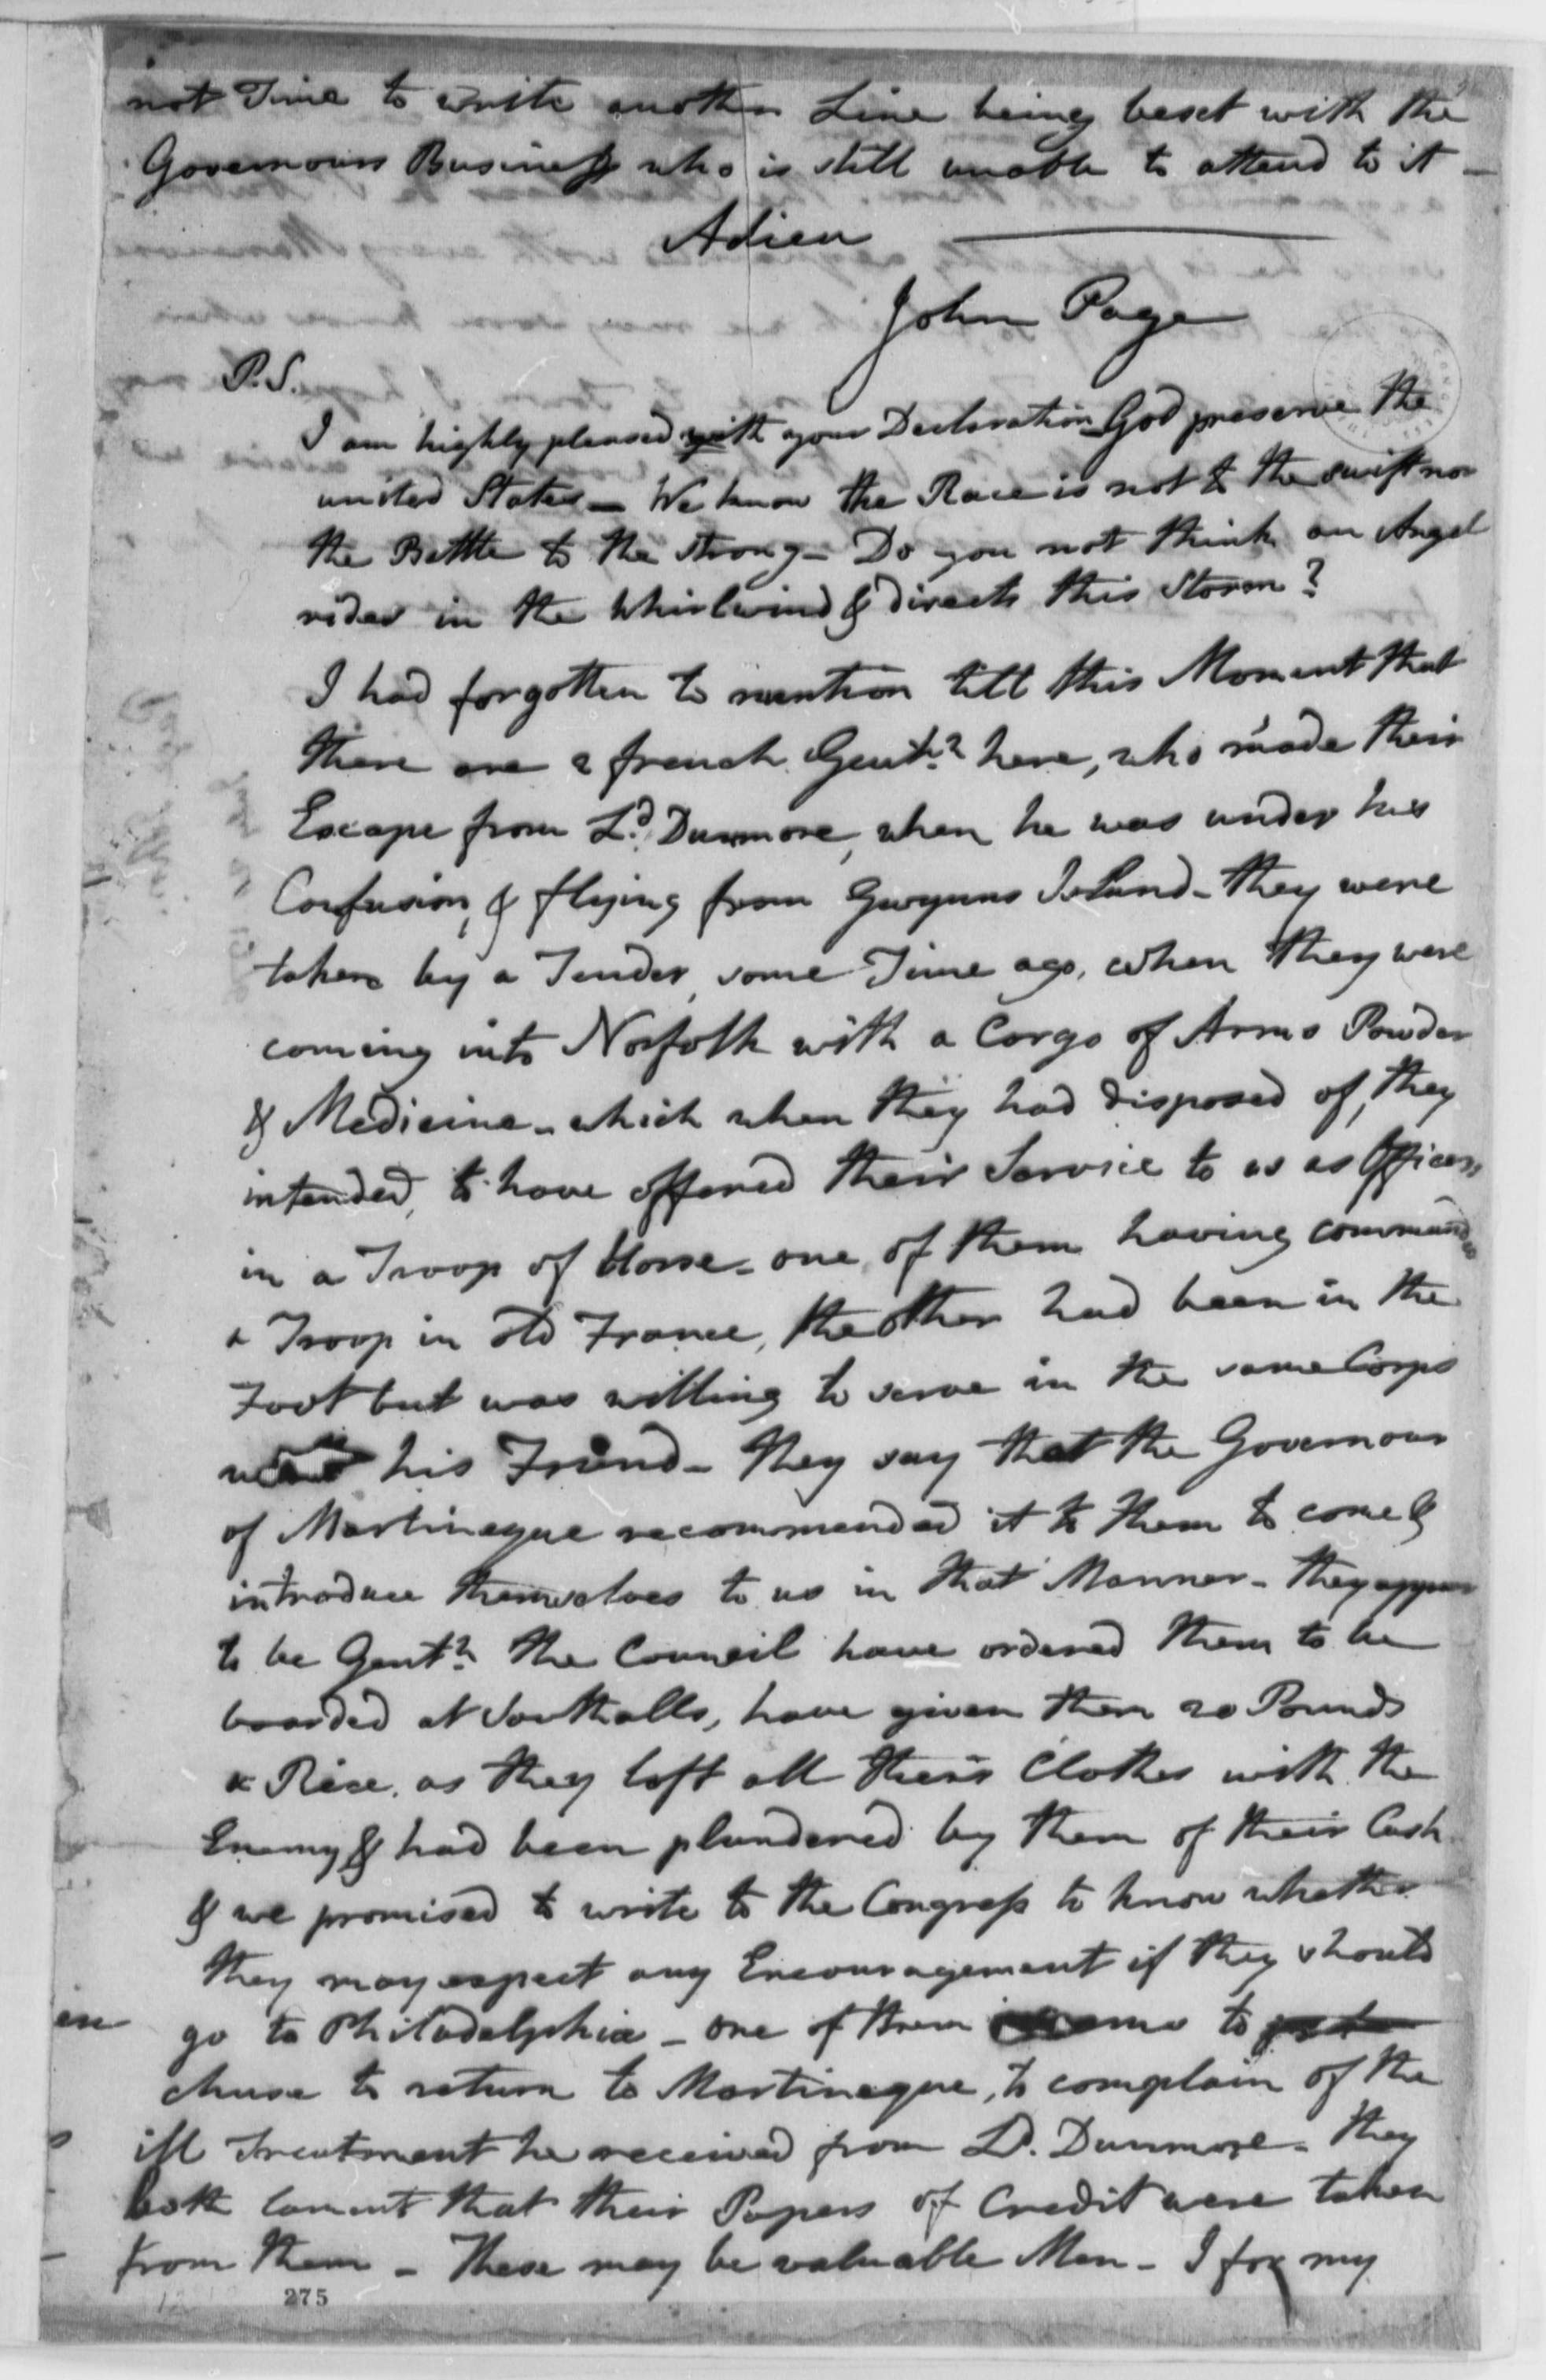 not Time to write another Line being beset with the
Governours Business who is still unable to attend to it —
Adieu
John Page
P.S.
I am highly pleased with your Declaration God preserve the
united States — We know the Race is not to the swift nor
the Battle to the strong — Do you not think an Angel
rides in the Whirlwind & directs this Storm?
I had forgotten to mention till this Moment that
there are 2 french Gentn. here, who made their
Escape from Ld. Dunmore, when he was under his
Confusion, & flying from Gwyns Island — they were
taken by a Tender, some Time ago, when they were
coming into Norfolk with a Cargo of Arms Powder
& Medicine — which when they had disposed of, they
intended, to have offered their Service to us as Officers
in a Troop of Horse — one, of them having commanded
a Troop in old France, the other had been in the
Foot but was willing to serve in the same Corps
his Friend — they say that the Governour
of Martineque recommended it to them to come &
introduce themselves to us in that Manner — they appear
to be Gentn. the Council have ordered them to be
boarded at Southalls, have given them 20 Pounds
as they left all their Clothes with the
Enemy & had been plundered by them of their Cash
& we promised to write to the Congress to know whether
they may expect any Encouragement if they should
go to Philadelphia — one of them seems to
chuse to return to Martineque, to complain of the
ill Treatment he received from Ld. Dunmore — they
both lament that their Papers of Credit were taken
from them — These may be valuable Men — I for my
275